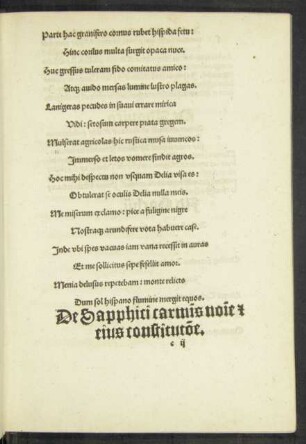 Parte hac granifero cornus rubet hispida fetu:
Hinc coulus multa surgit opaca nuce.
Huc gressus tuleram fido comitatus amico:
Atqꝫ auido mersus lumine lustro plagas.
Lanigeras pecudes in suaui errare mirica
Vidi: setosum carpere prata gregem.
Mulserat agricolas hic rustica musa iuuencos:
Immerso et letos vomere findit agros.
Hoc mihi despectu non vsquam Delia visa es:
Obtulerat se oculis Delia nulla meis.
Me miserum exclamo: pice a fuligine nigre
Nostraqꝫ arundifere vota habuere casę.
Inde vbi spes vacuas iam vana recessit in auras
Et me sollicitus sepe fefellit amor.
Menia delusus repetebam: monte relicto
Dum sol hispano flumine mergit equos.
De Sapphici carmīs noīe ⁊
eius constitutōe.
c ij